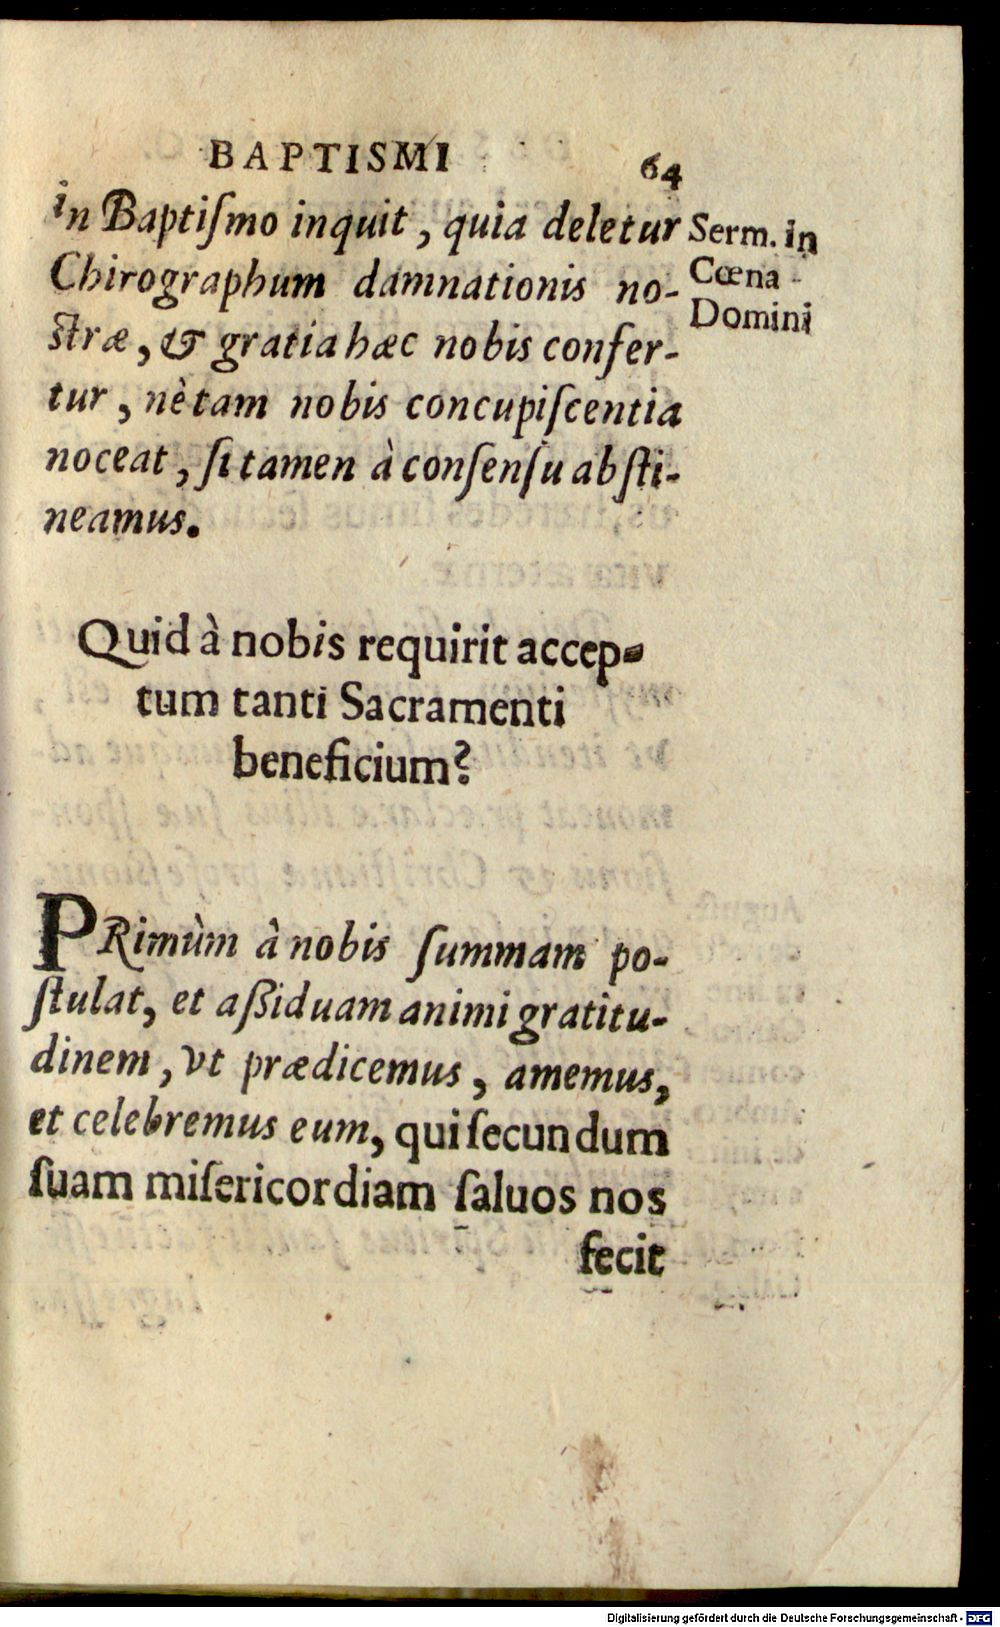 BAPTISMI 64
in Baptiſmo inquit, quia deletur
Serm. in
Chirographum damnationis no-
Cœna
ſtræ, & gratia hæc nobis confer-
Domini
tur, nè tam nobis concupiſcentia
noceat, ſi tamen à conſenſu abſti-
neamus.
Quid à nobis requirit accep-
tum tanti Sacramenti
beneficium?
PRimùm à nobis ſummam po-
ſtulat, et aßiduam animi gratitu-
dinem, vt prædicemus, amemus,
et celebremus eum, qui ſecundum
ſuam miſericordiam ſaluos nos
fecit
Digitalisierung gefördert durch die Deutsche Forschungsgemeinschaft - DFG